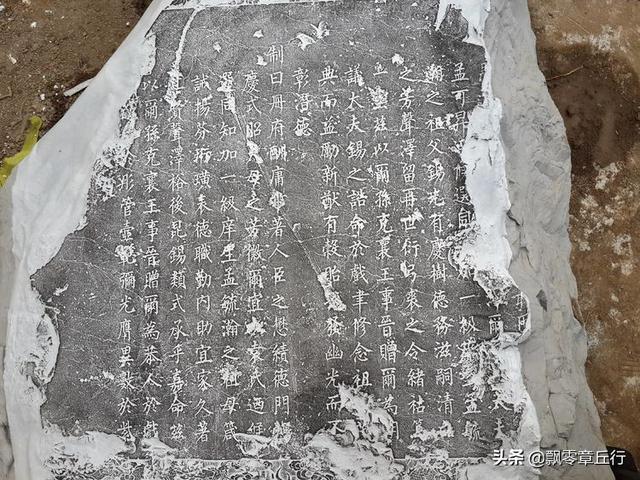 孟可昇候選級生孟毓
瀚之祖父錫光有慶樹德務滋嗣清
之芳聲澤留再世衍弓裘之令緒祜
堂茲以爾孫克襄王事晉贈爾為朝
議大夫錫之誥命於戲聿修念祖
典而益勵新猷有穀貽孫幽光而丕
彰潛德
制曰冊府酬庸聿著人臣之懋績德門輯
慶式昭大母之芳徽爾宜袁氏迺
選同知加一級庠生孟毓瀚之祖母箴
誡揚芬珩璜表德職勤內助宜家久著
賢聲澤裕後昆錫類式承乎嘉命茲
以爾孫克襄王事晉贈爾為恭人於戲
於彤管壼德彌光膺異數於紫
头条 @飘零章丘行